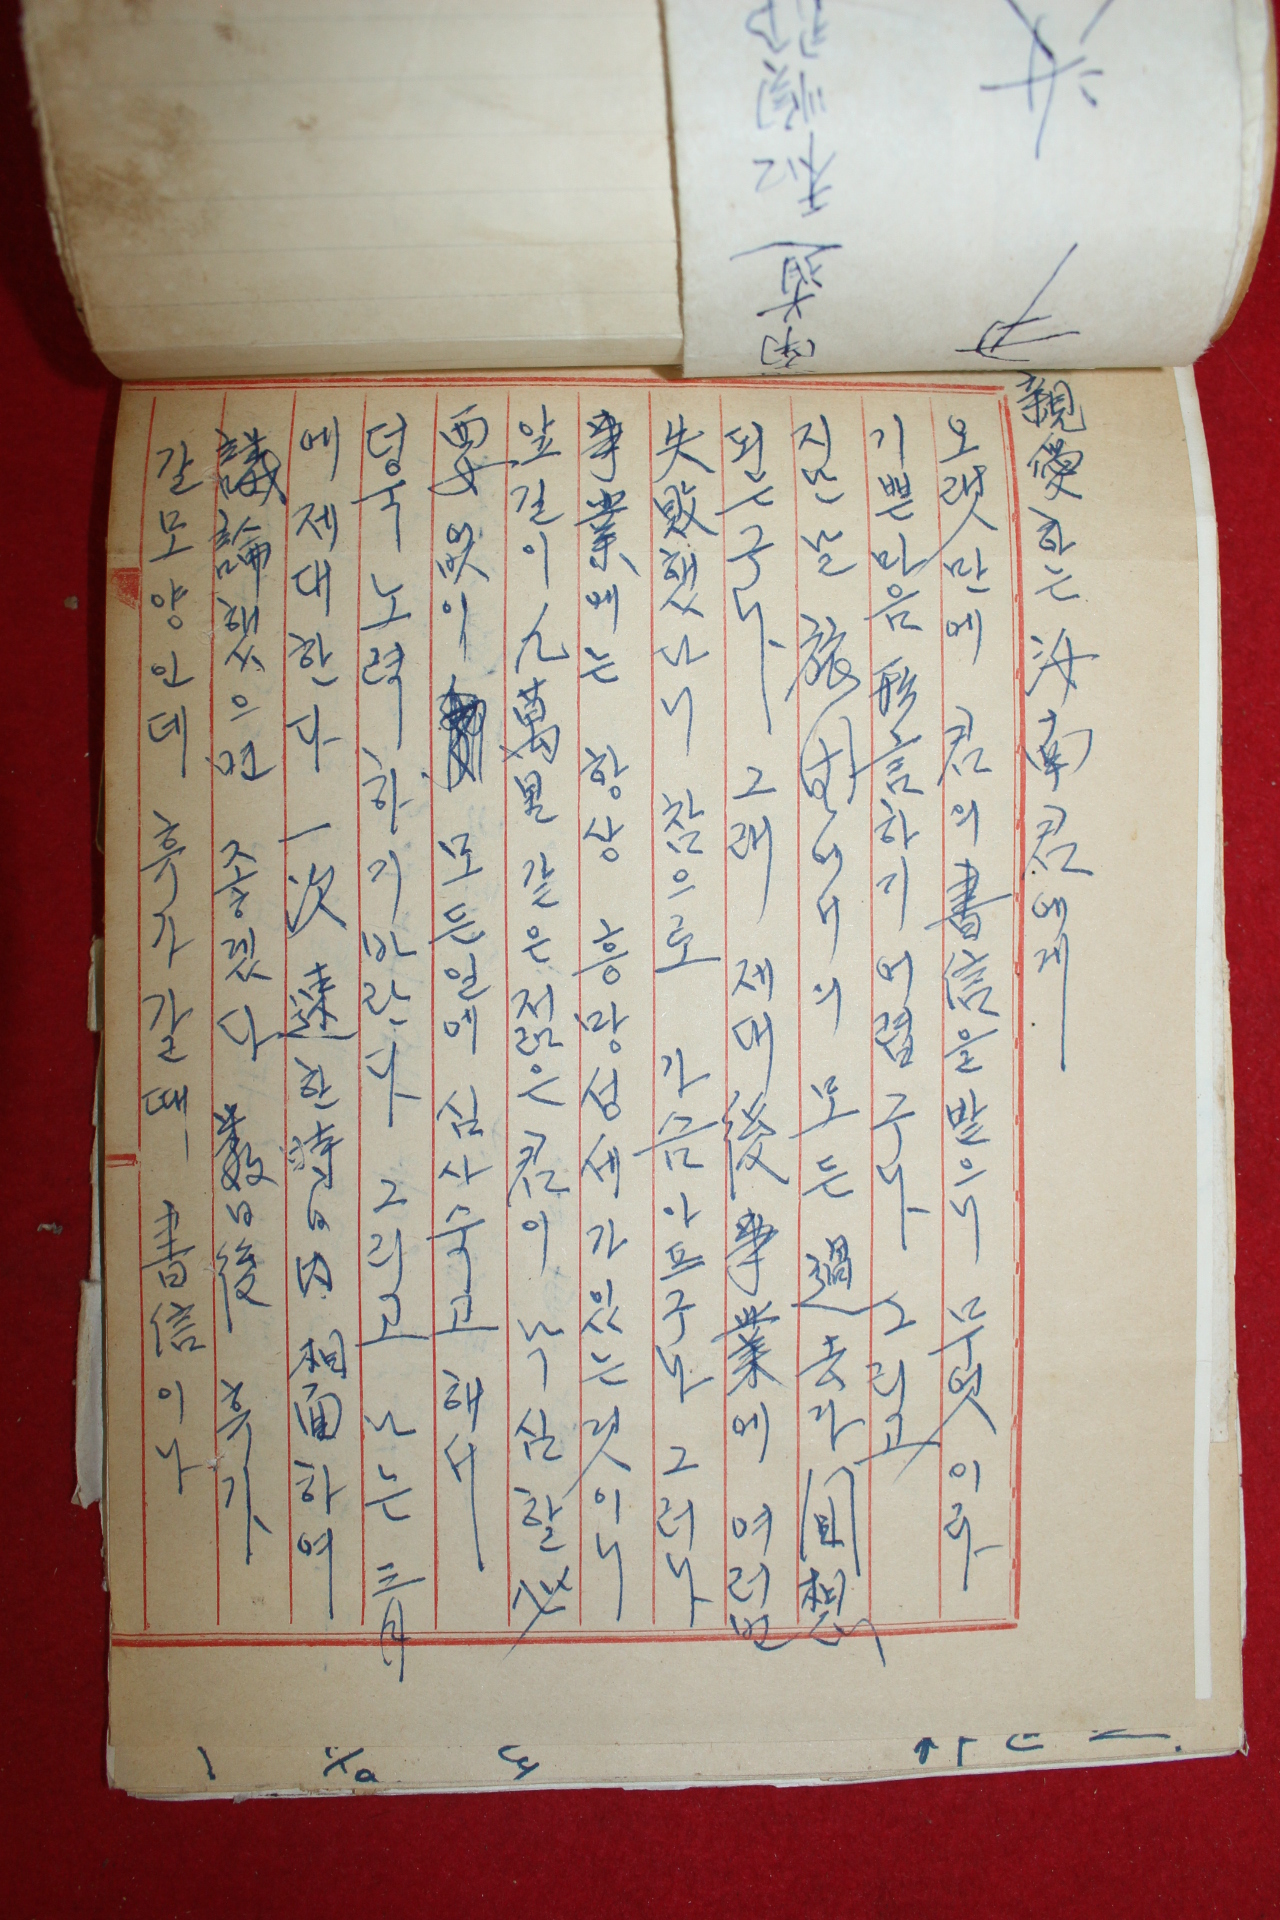 親愛하는 汝南君에게
오랫만에 君의 書信을 받으니 무엇이라
기쁜마음 形言하기 어렵구나 그리고
지난날 旅 에서의 모든 過去가 回想
된는구나 그래 제대後 事業에 여러번
失敗했다니 참으로 가슴아프구나 그러나
事業에는 항상 흥망성세가있는것이니
앞길이 九萬里 같은 젊은君이 낙심할必
要없이 모든일에 심사숙고 해서
덩욱 노력 하기바란다 그리고 나는 三月
에 제대한다 一次 速한時日內 相面하여
議論했으면 좋겠다 數日後 휴가
갈모양인데 휴가갈때 書信이나